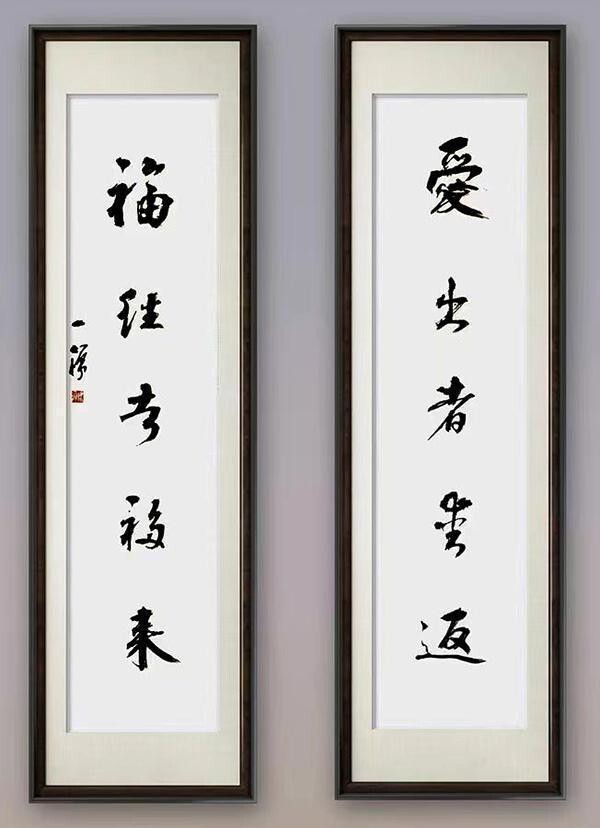 愛出者愛返
福往者福來
一